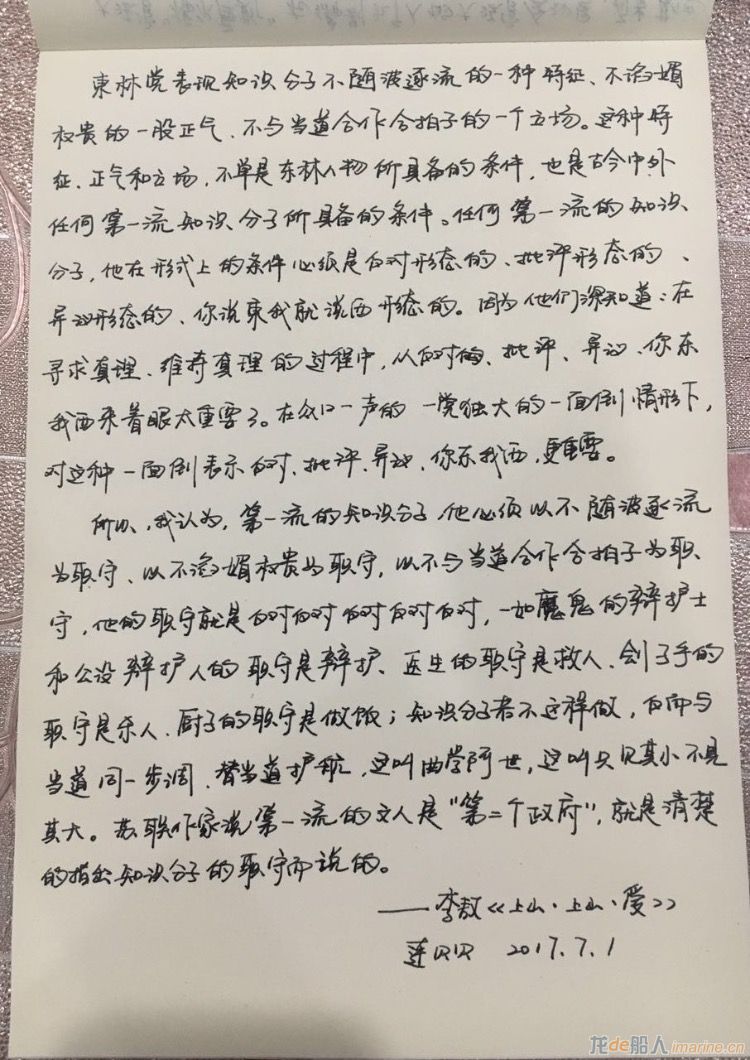 東林党表现知识分子不随波逐流的一种特征、不谄媚
权贵的一股正气、不与当道合作合拍子的一个立场。这种特
征、正气和立场，不单是东林人物所具备的条件，也是古今中外
任何第一流知识分子所具备的条件。任何第一流的知识
分子，他在形式上的条件必须是反对形态的、批评形态的、
异议形态的、你说東我就说西形态的。因为他们深知道：在
寻求真理、维持真理的过程中，从反对的、批评、异议、你东
我西来着眼太重要了。在众口一声的一党独大的一面倒情形下，
对这种一面倒表示反对、批评、异议、你东我西，更重要。
所以、我认为，第一流的知识分子，他必须以不随波逐流
为职守、以不谄媚权贵为职守，以不与当道合作合拍子为职
守，他的职守就是反对反对反对反对反对，一如魔鬼的辩护士
和公设辩护人的职守是辩护、医生的职守是救人、刽子手的
职守是杀人、厨子的职守是做饭；知识分子若不这样做，反而与
当道同一步调、替当道护航，这叫曲学阿世，这叫只见其小不见
其大。苏联作家说第一流的文人是"第二个政府"，就是清楚
的指出知识分子的职守而说的。
——李敖《上山·上山·爱》
莲贝贝 2017.7.1
龙de船人 imarine.cn